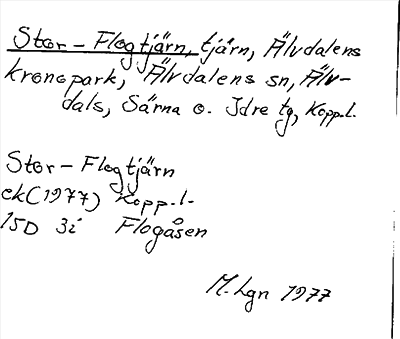 Stor-Flogtjärn, tjärn, Älvdalens
kronopark, Älvdalens sn, Älv-
dals, Särna o. Idre tg, Kopp.l.
Stor-Flogtjärn
ek(1977) Kopp.l.
15D 3i Flogåsen
M.Lgn 1977